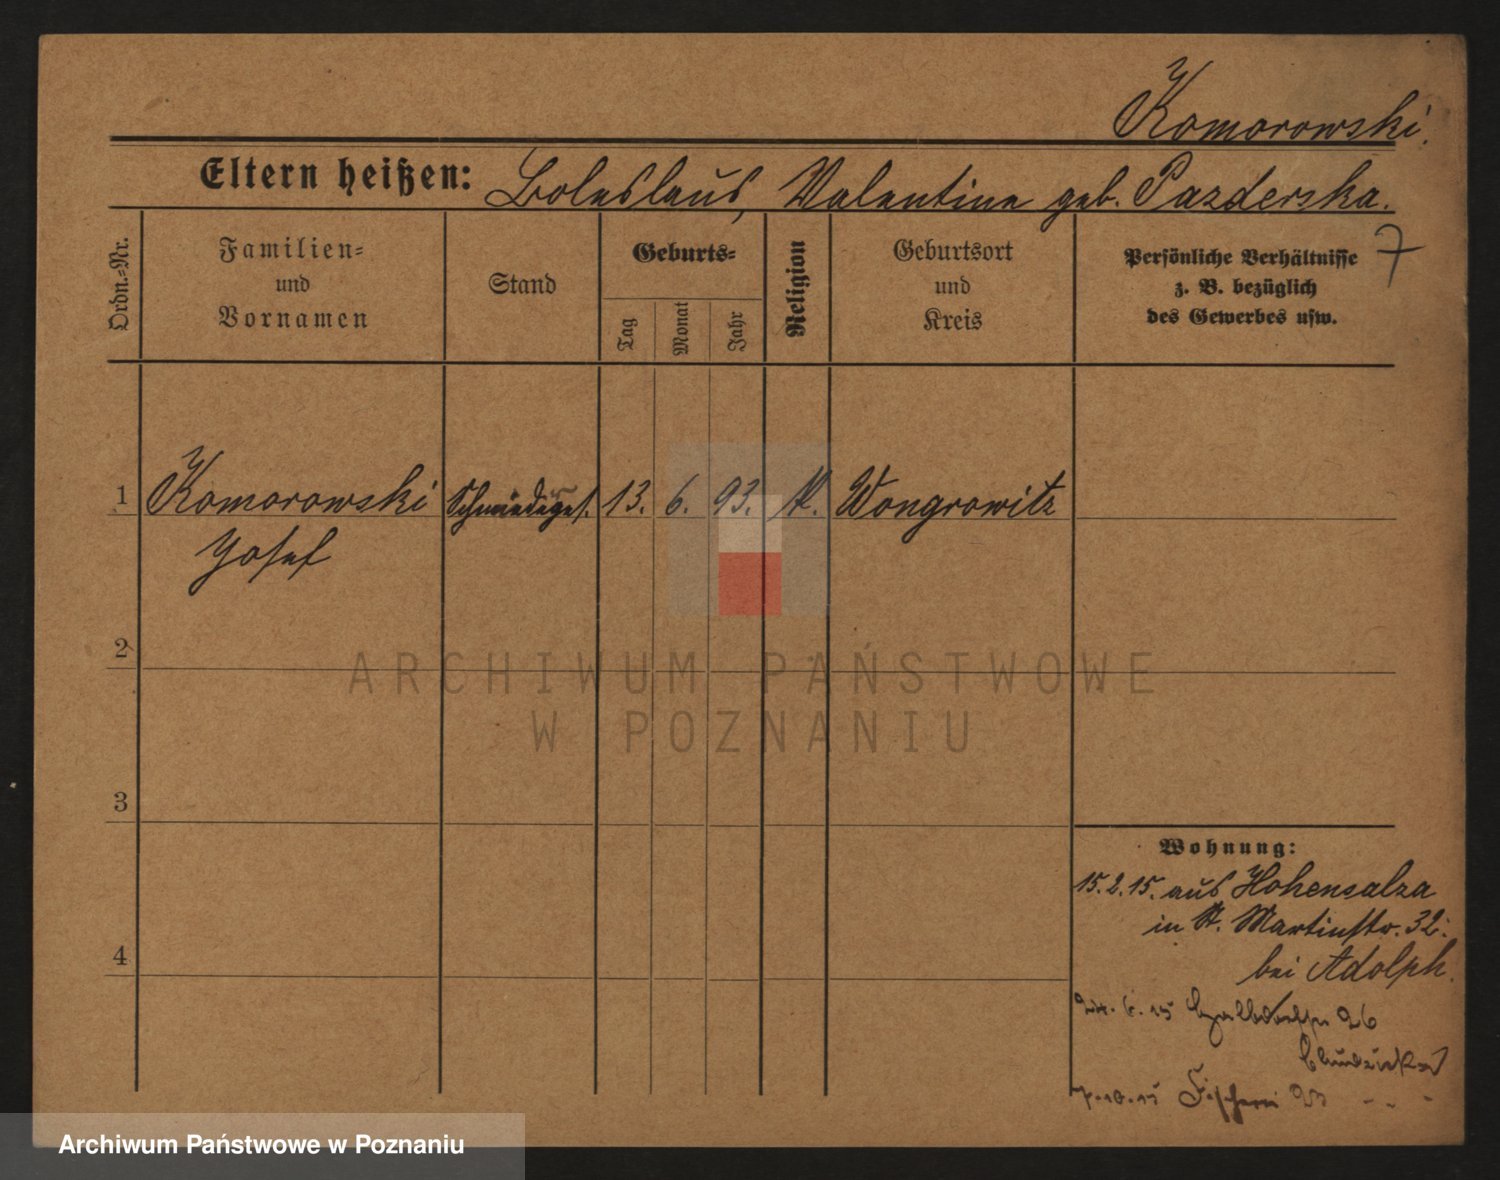 Komorowski.
Eltern heißen: Boleslaus, Valentine geb. Pazderska.
7
Ordn.=Nr.
Familien=
und
Vornamen
Stand
Geburts=
Tag
Monat
Jahr
Religion
Geburtsort
und
Kreis
Persönliche Verhältnisse
z. B. bezüglich
des Gewerbes usw.
1 Komorowski Schmiedeges. 13. 6. 93. K. Wongrowitz
Josef
2
3
4
Wohnung:
15.2.15. aus Hohensalza
in St. Martinstr. 32.
bei Adolph.
24. 6. 15 26
7.10.15 Fischerei 23 - - -
ARCHIWUM PAŃSTWOWE
W POZNANIU
Archiwum Państwowe w Poznaniu